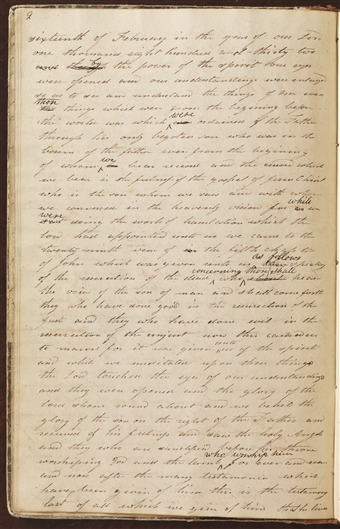 2
sixteenth of February in the year of our Lord
one thousand eight hundred and thirty two
by the power of the spirit our eyes
were opened and our understandings were enlight
so as to see and understand the things of God even
thos things which were from the beginning before
were
the world was which ordained of the Father
through his only begotten Son who was in the
bosom of the father even from the beginning
we
of whom bear record and the record which
we bear is the fulness of the gospel of Jesus Christ
who is the son whom we saw and with whom
we conversed in the heavenly vision for while
were
we doing the work of translation which the
lord had appointed unto us we came to the
twenty ninth verse of the fifth chapter
as follows
of John which was given unto us
concerning those shall
of the resurrection of the dead who hear
the voice of the son of man and shall come forth
they who have done good in the resurrection of the
just and they who have done evil in the
resurrection of the unjust now this caused us
unto
to marvel for it was given us of the spirit
and while we meditated upon these things
the Lord touched the eyes of our understandings
and they were opened and the glory of the
lord shone round about and we beheld the
glory of the son on the right of the Father and
received of his fulness and saw the holy Angels
and they who are sanctified before his throne
who worship him
worshiping God and the Lamb for ever and ever
and now after the many testimonies which
have been given of him this is the testimony
last of all which we give of him that he lives